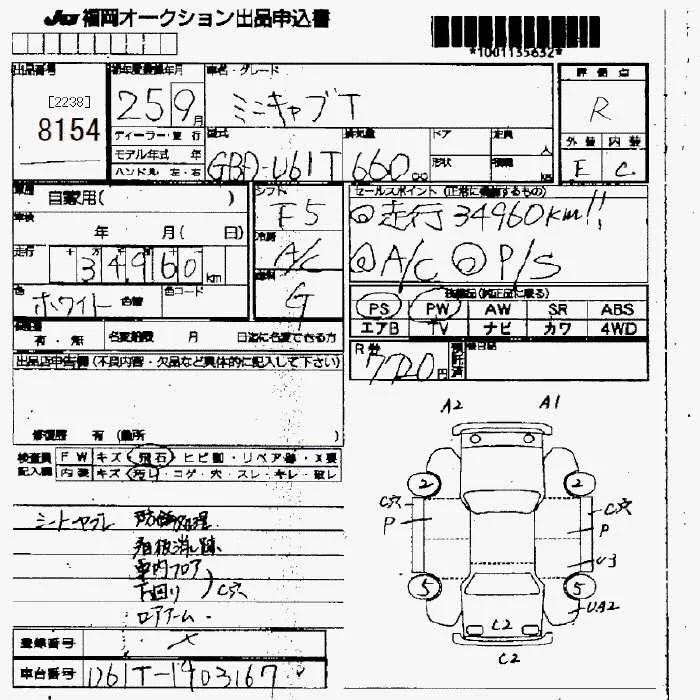 JU 福岡オークション出品申込書
*1001135632*
出品番号
[2238]
8154
初年度登録年月
25 9月
ディーラー・並行
モデル年式 年
ハンドル 左・右
車名・グレード
ミニキャブT
型式
GBD-U61T
排気量
660cc
ドア
形状
定員
人
積載
評価点
R
外装 内装
E C
車歴
自家用( )
車検
年 月( 日)
走行
34960km
色
ホワイト 色替
色コード
シフト
F5
冷房
A/C
燃料
G
セールスポイント(正常に機能するもの)
◎走行34960km!!
◎A/C ◎P/S
装備品(純正品に限る)
PS PW AW SR ABS
エアB TV ナビ カワ 4WD
有・無 名変期限 月 日迄に名変できる方
R券
7720円
預託済
出品店申告欄(不具合内容・欠品など具体的に記入して下さい)
修復歴 有(箇所 )
検査員記入欄
FW キズ・飛石・ヒビ割・リペア跡・X要
内装 キズ・汚レ・コゲ・穴・スレ・キレ・破レ
シートヤブレ 防錆処理
看板消し跡
車内フロア
下回り C穴
ロアアーム
登録番号
車台番号 U61T-1403167
A2 A1
2 2
C穴 C穴
P P
U3
5 5
UA2
C2
C2